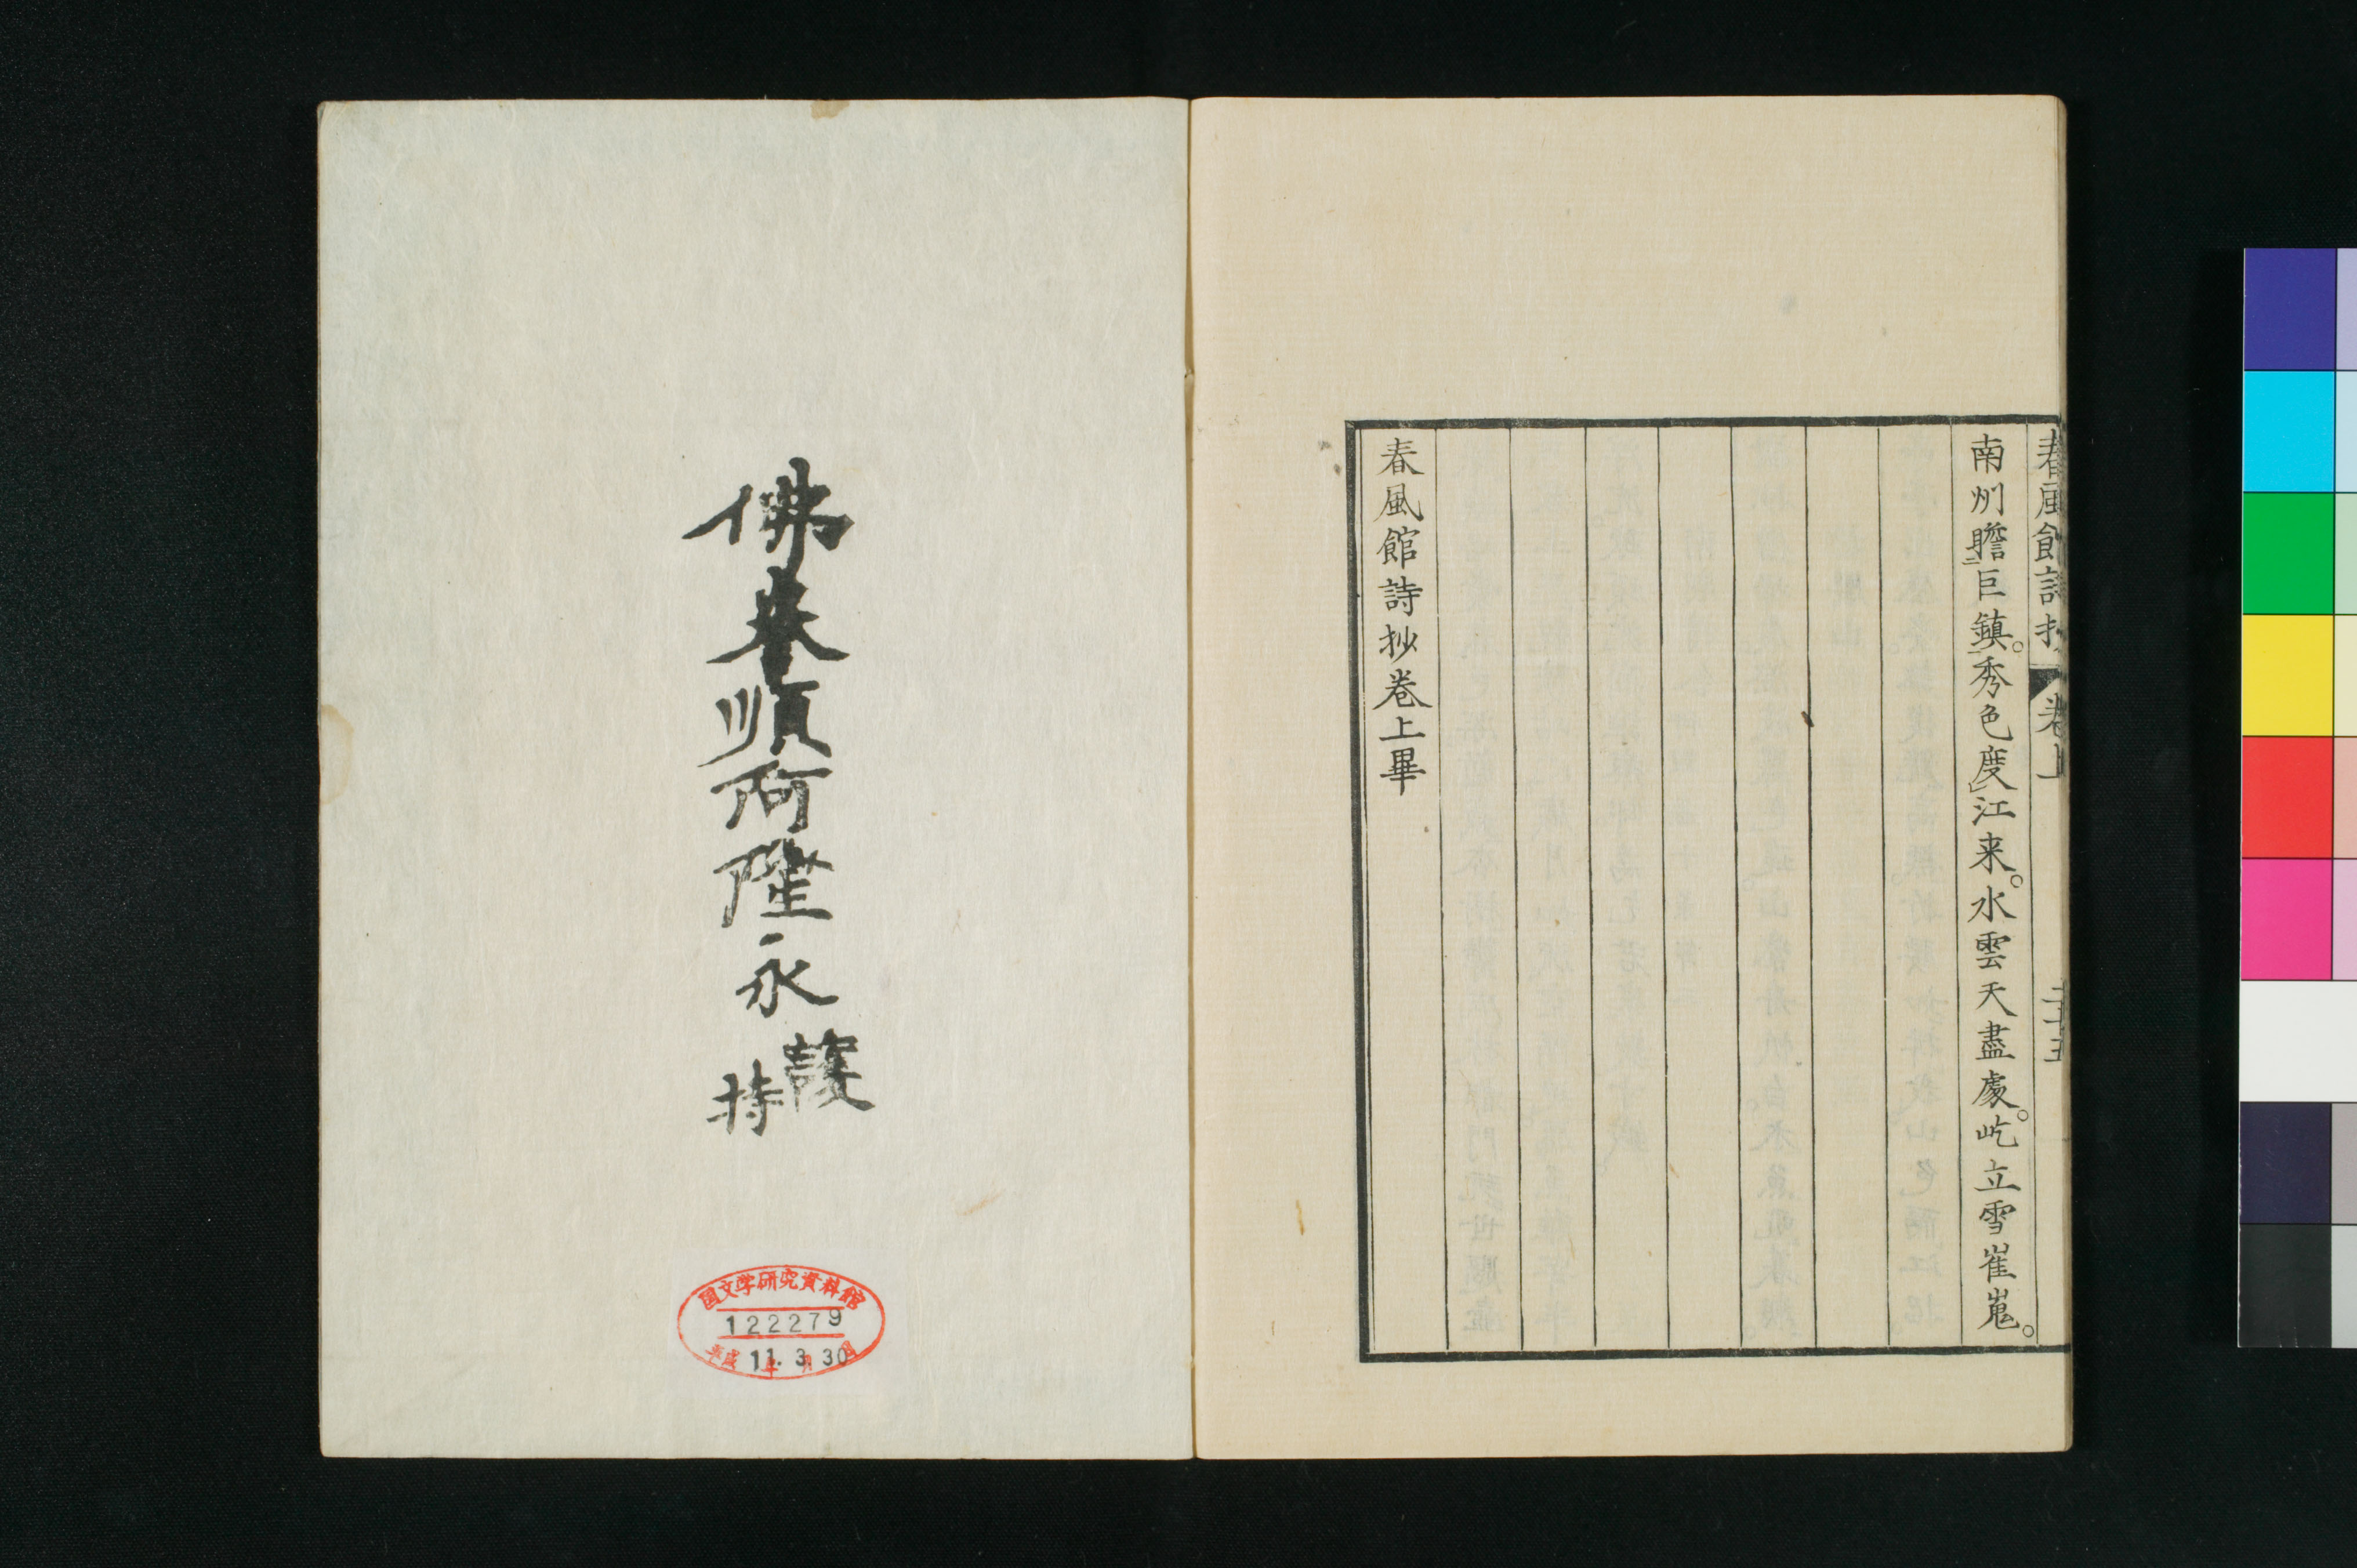 春風館詩抄 卷上
南州瞻巨鎮。秀色度江来。水雲天盡處。屹立雪崔嵬。
春風館詩抄卷上畢
佛眷順阿隆永護持
国文学研究資料館
122279
平成 11年 3月 30日